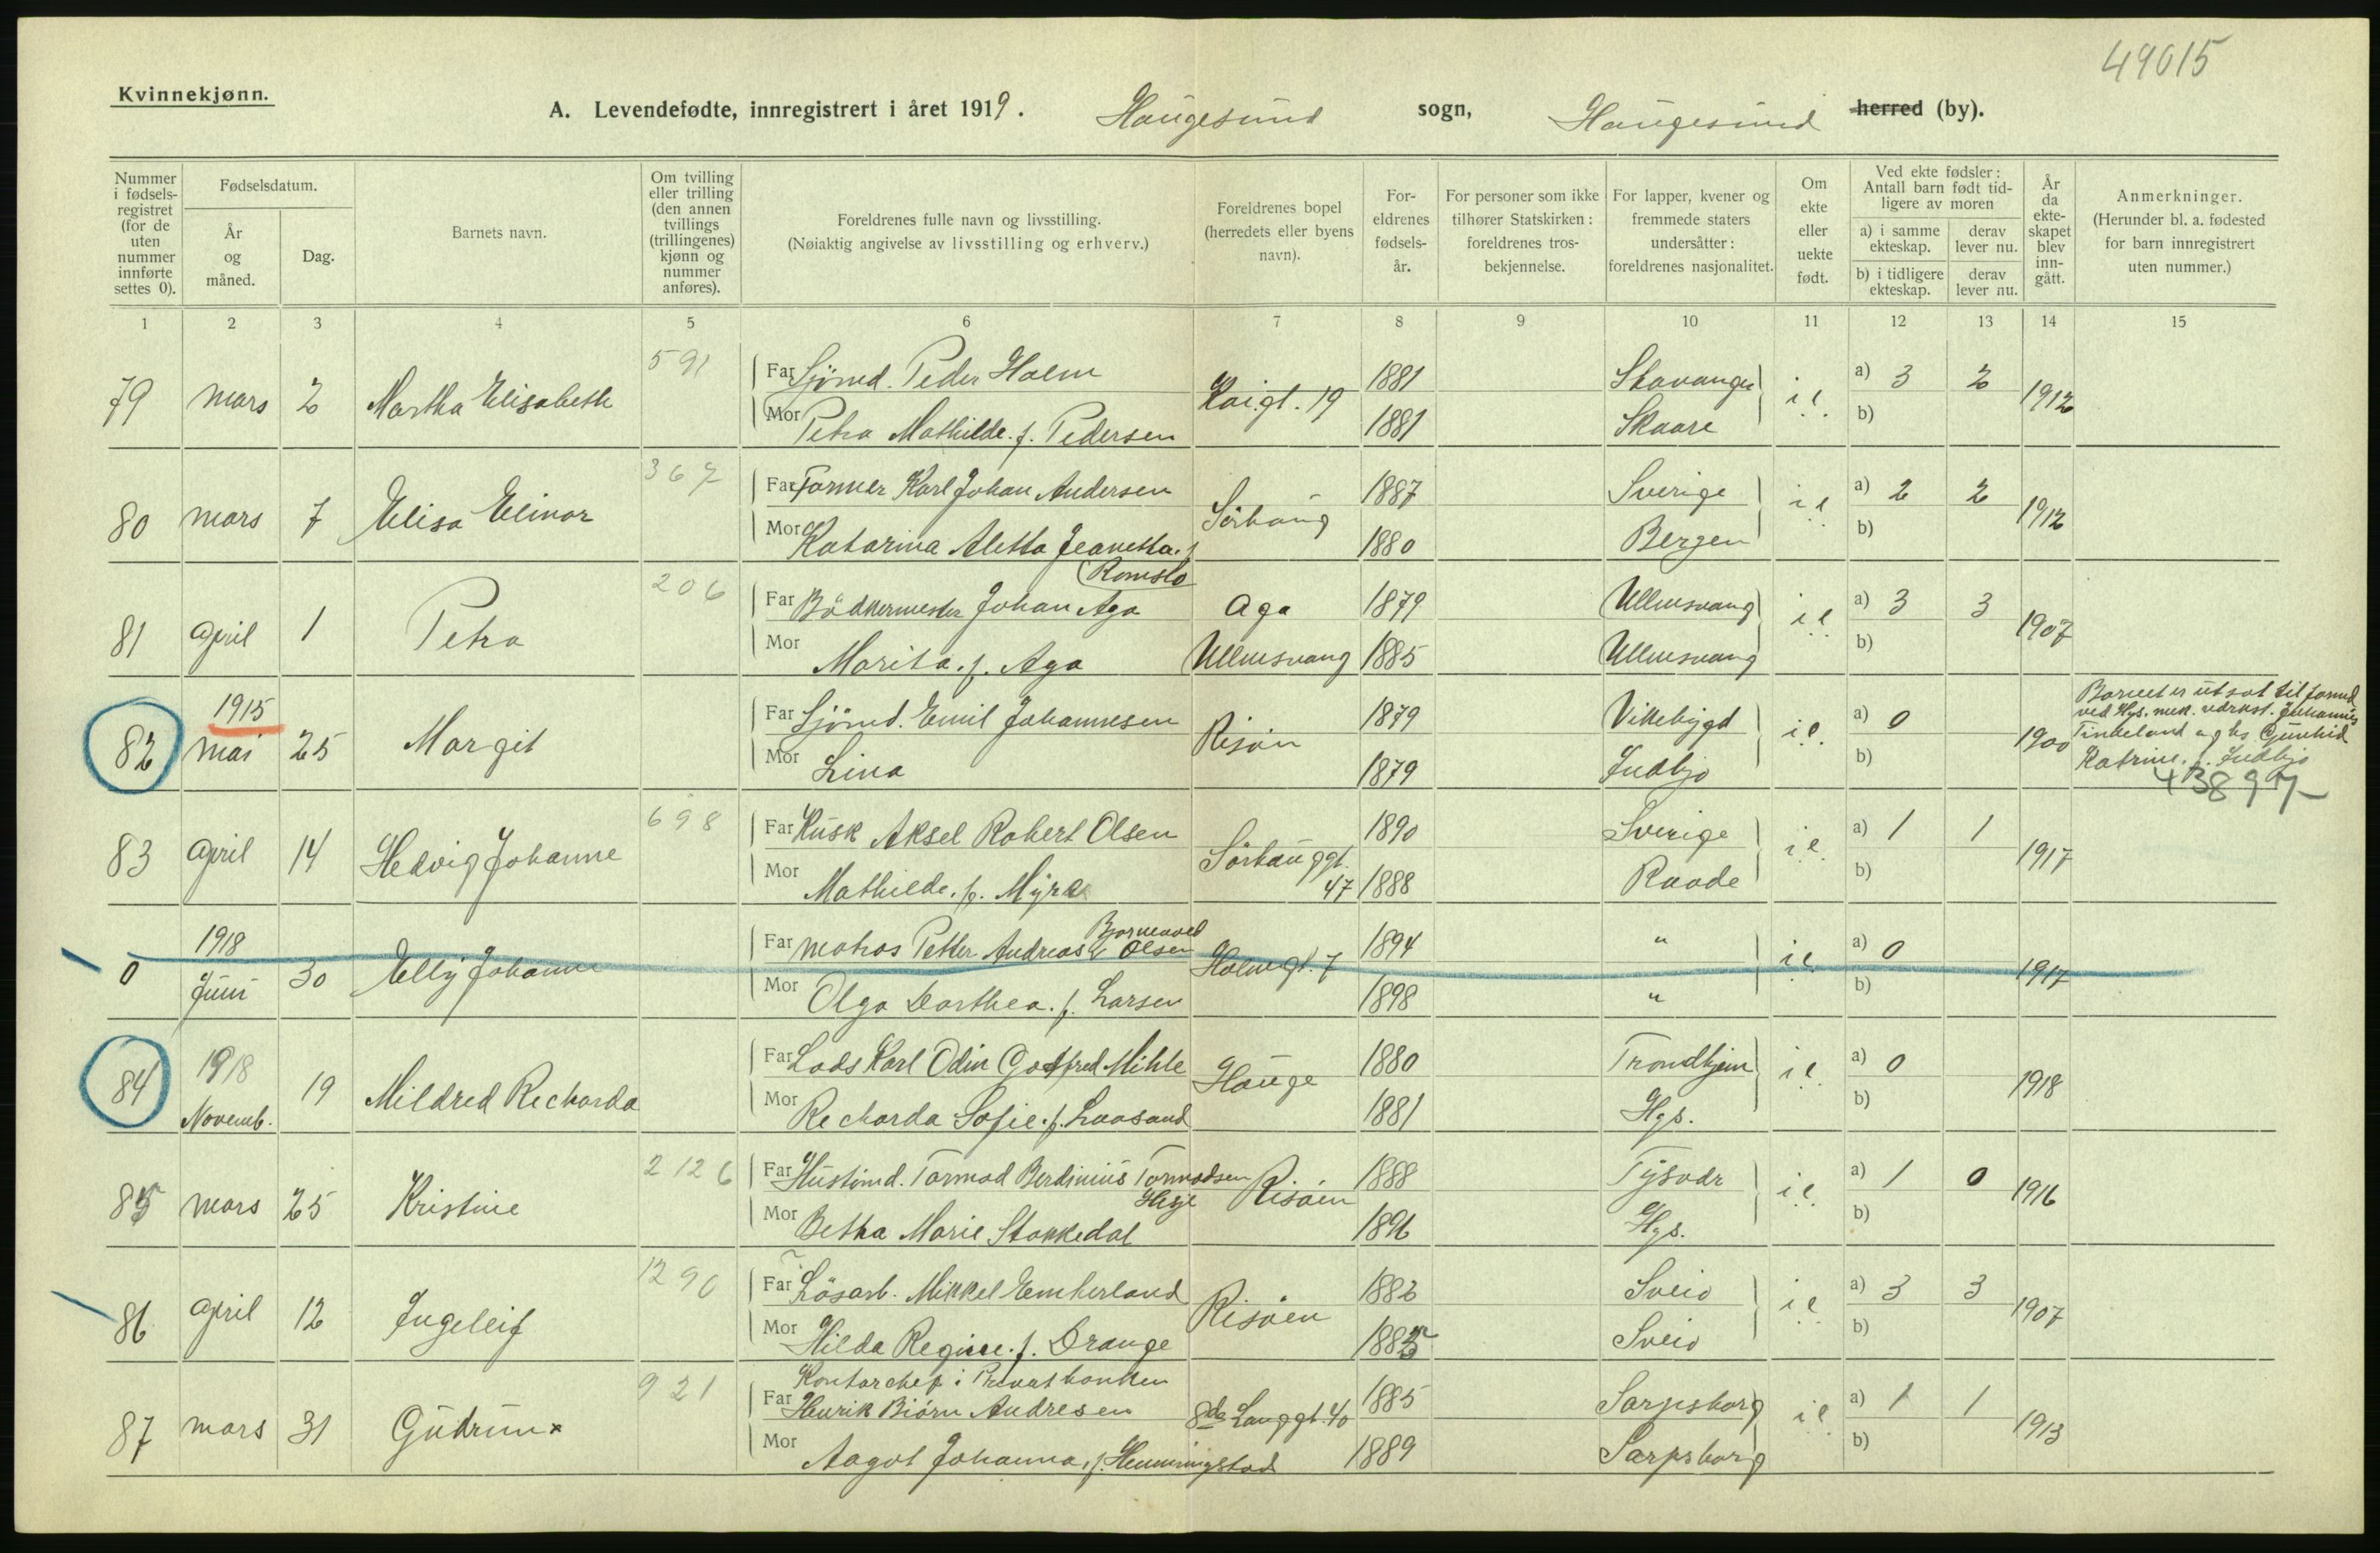 49015
Kvinnekjønn.
A. Levendefødte, innregistrert i året 1919. Haugesund sogn, Haugesund herred (by).
Nummer i fødsels-registret (for de uten nummer innførte settes 0).
Fødselsdatum.
År og måned.
Dag.
Barnets navn.
Om tvilling eller trilling (den annen tvillings (trillingenes) kjønn og nummer anføres).
Foreldrenes fulle navn og livsstilling.
(Nøiaktig angivelse av livsstilling og erhverv.)
Foreldrenes bopel (herredets eller byens navn).
For-eldrenes fødsels-år.
For personer som ikke tilhører Statskirken: foreldrenes tros-bekjennelse.
For lapper, kvener og fremmede staters undersåtter: foreldrenes nasjonalitet.
Om ekte eller uekte født.
Ved ekte fødsler: Antall barn født tid-ligere av moren
a) i samme ekteskap.
derav lever nu.
b) i tidligere ekteskap.
derav lever nu.
År da ekte-skapet blev inn-gått.
Anmerkninger.
(Herunder bl. a. fødested for barn innregistrert uten nummer.)
1 2 3 4 5 6 7 8 9 10 11 12 13 14 15
79 mars 2 Martha Elisabeth 591 Far Sjömd. Peder Holm Kaigt. 19 1881 Stavanger i.e. a) 3 2 1912
Mor Petra Mathilde. f. Pedersen 1881 Skaare b)
80 mars 7 Elisa Elinor 367 Far Former Karl Johan Andersen Sörhaug 1887 Sverige i.e. a) 2 2 1912
Mor Katarina Aletta Jeanetta. f 1880 Bergen b)
(Romslo
81 april 1 Petra 206 Far Bödkermester Johan Aga Aga 1879 Ullensvang i.e. a) 3 3 1907
Mor Marita. f. Aga Ullensvang 1885 Ullensvang b)
82 1915 mai 25 Margit Far Sjömd. Emil Johannesen Risöin 1879 Vikebygd i.e. a) 0 1900
Mor Lina 1879 Indbjo b)
Barnet er utsat til formd
ved Hgs. mek. verkst. Johannes
Tinkeland og hs Gunhild
Katrine. f. Indbjo
43897
83 april 14 Hedvig Johanne 698 Far Kusk Aksel Robert Olsen Sörhauggt. 47 1890 Sverige i.e. a) 1 1 1917
Mor Mathilde. f. Myra 1888 Raade b)
0 1918 Juni 30 Elly Johanne Far matros Petter Andreas Olsen Holmegt. 7 1894 " i.e. a) 0 1917
Mor Olga Dorthea. f. Larsen 1898 " b)
84 1918 Novemb. 19 Mildred Recharda Far Lods Karl Odin Godfred Mihle Hauge 1880 Trondhjem i.e. a) 0 1918
Mor Recharda Sofie. f. Laasund 1881 Hgs. b)
85 mars 25 Kristine 2126 Far Hustömd. Tormod Berdinius Tormodsen Hesje Risöen 1888 Tysvær i.e. a) 1 0 1916
Mor Betha Marie Stokkedal 1896 Hgs. b)
86 april 12 Ingeleif 1290 Far Lösarb. Mikkel Emberland Risöen 1882 Sveio i.e. a) 3 3 1907
Mor Hilda Regine. f. Drange 1885 Sveio b)
Kontorchef i Privatbanken
87 mars 31 Gudrun x 921 Far Henrik Biörn Andresen 8de Langgt. 40 1885 Sarpsborg i.e. a) 1 1 1913
Mor Aagot Johanna, f. Henningstad 1889 Sarpsborg b)